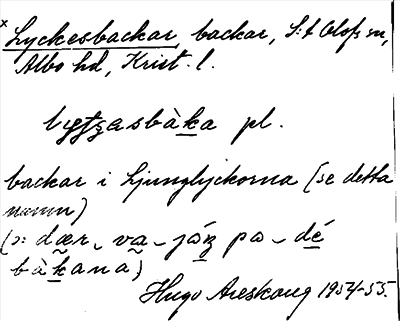 x Lyckesbackar, backar, S:t Olofs sn,
Albo hd, Krist. l.
pl.
backar i Ljunglyckorna (se detta
namn)
(ɔ: dær- va- pa- dé
bàkana)
Hugo Areskoug 1954-55.